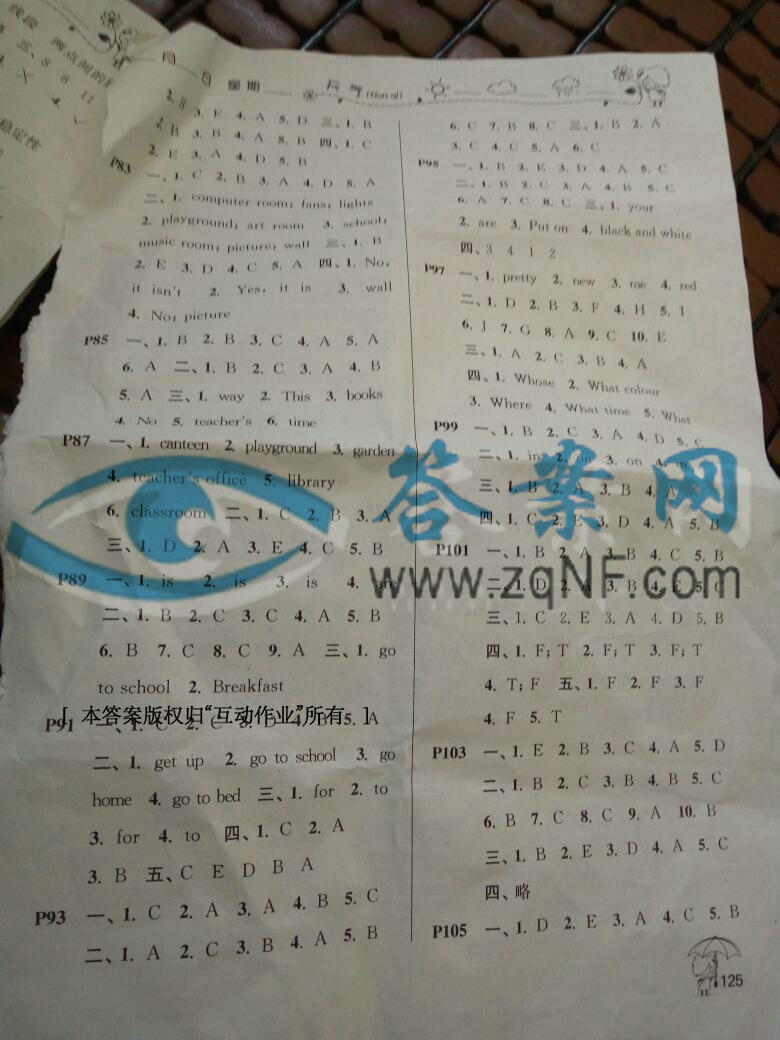 线段 两点间的
三、8 6 11
稳定性
月 日 星期 天气(tiān qì)
2. B 3. E 4. A 5. D 三、1. B
2. B 3. B 4. A 5. B 四、1. C
2. E 3. A 4. D 5. B
P83 一、1. C 2. B 3. A 4. D 5. A
二、1. computer room; fans; lights
2. playground; art room 3. school;
music room; picture; wall 三、1. B
2. E 3. D 4. C 5. A 四、1. No,
it isn't 2. Yes, it is 3. wall
4. No; picture
P85 一、1. B 2. B 3. C 4. A 5. A
6. A 二、1. B 2. C 3. A 4. B
5. A 三、1. way 2. This 3. books
4. No 5. teacher's 6. time
P87 一、1. canteen 2. playground 3. garden
4. teacher's office 5. library
6. classroom 二、1. C 2. B 3. A
三、1. D 2. A 3. E 4. C 5. B
P89 一、1. is 2. is 3. is 4. are
二、1. B 2. C 3. C 4. A 5. B
6. B 7. C 8. C 9. A 三、1. go
to school 2. Breakfast
[ 本答案版权归“互动作业”所有 ]
P91 一、1. C 2. C 3. D 4. B 5. A
二、1. get up 2. go to school 3. go
home 4. go to bed 三、1. for 2. to
3. for 4. to 四、1. C 2. A
3. B 五、C E D B A
P93 一、1. C 2. A 3. A 4. B 5. C
二、1. A 2. C 3. B 4. A 5. B
6. C 7. B 8. C 三、1. B 2. A
3. C 4. C 5. A 6. C
P95 一、1. B 2. E 3. D 4. A 5. C
二、1. B 2. C 3. A 4. B 5. C
6. A 7. C 8. C 三、1. your
2. are 3. Put on 4. black and white
四、3 4 1 2
P97 一、1. pretty 2. new 3. me 4. red
二、1. D 2. B 3. F 4. H 5. I
6. J 7. G 8. A 9. C 10. E
三、1. A 2. C 3. B 4. A
四、1. Whose 2. What colour
3. Where 4. What time 5. What
P99 一、1. B 2. C 3. A 4. D 5. C
二、1. in 2. on 3. on 4.
三、1. B 2. A 3. B 4. A 5.
四、1. C 2. E 3. D 4. A 5. B
答案网
www.zqNF.com
P101 一、1. B 2. A 3. B 4. C 5. B
二、1. D 2. A 3. B 4. E 5. C
三、1. C 2. E 3. A 4. D 5. B
四、1. F; T 2. F; T 3. F; T
4. T; F 五、1. F 2. F 3. F
4. F 5. T
P103 一、1. E 2. B 3. C 4. A 5. D
二、1. B 2. C 3. B 4. B 5. C
6. B 7. C 8. C 9. A 10. B
三、1. B 2. E 3. D 4. A 5. C
四、略
P105 一、1. D 2. E 3. A 4. C 5. B
125